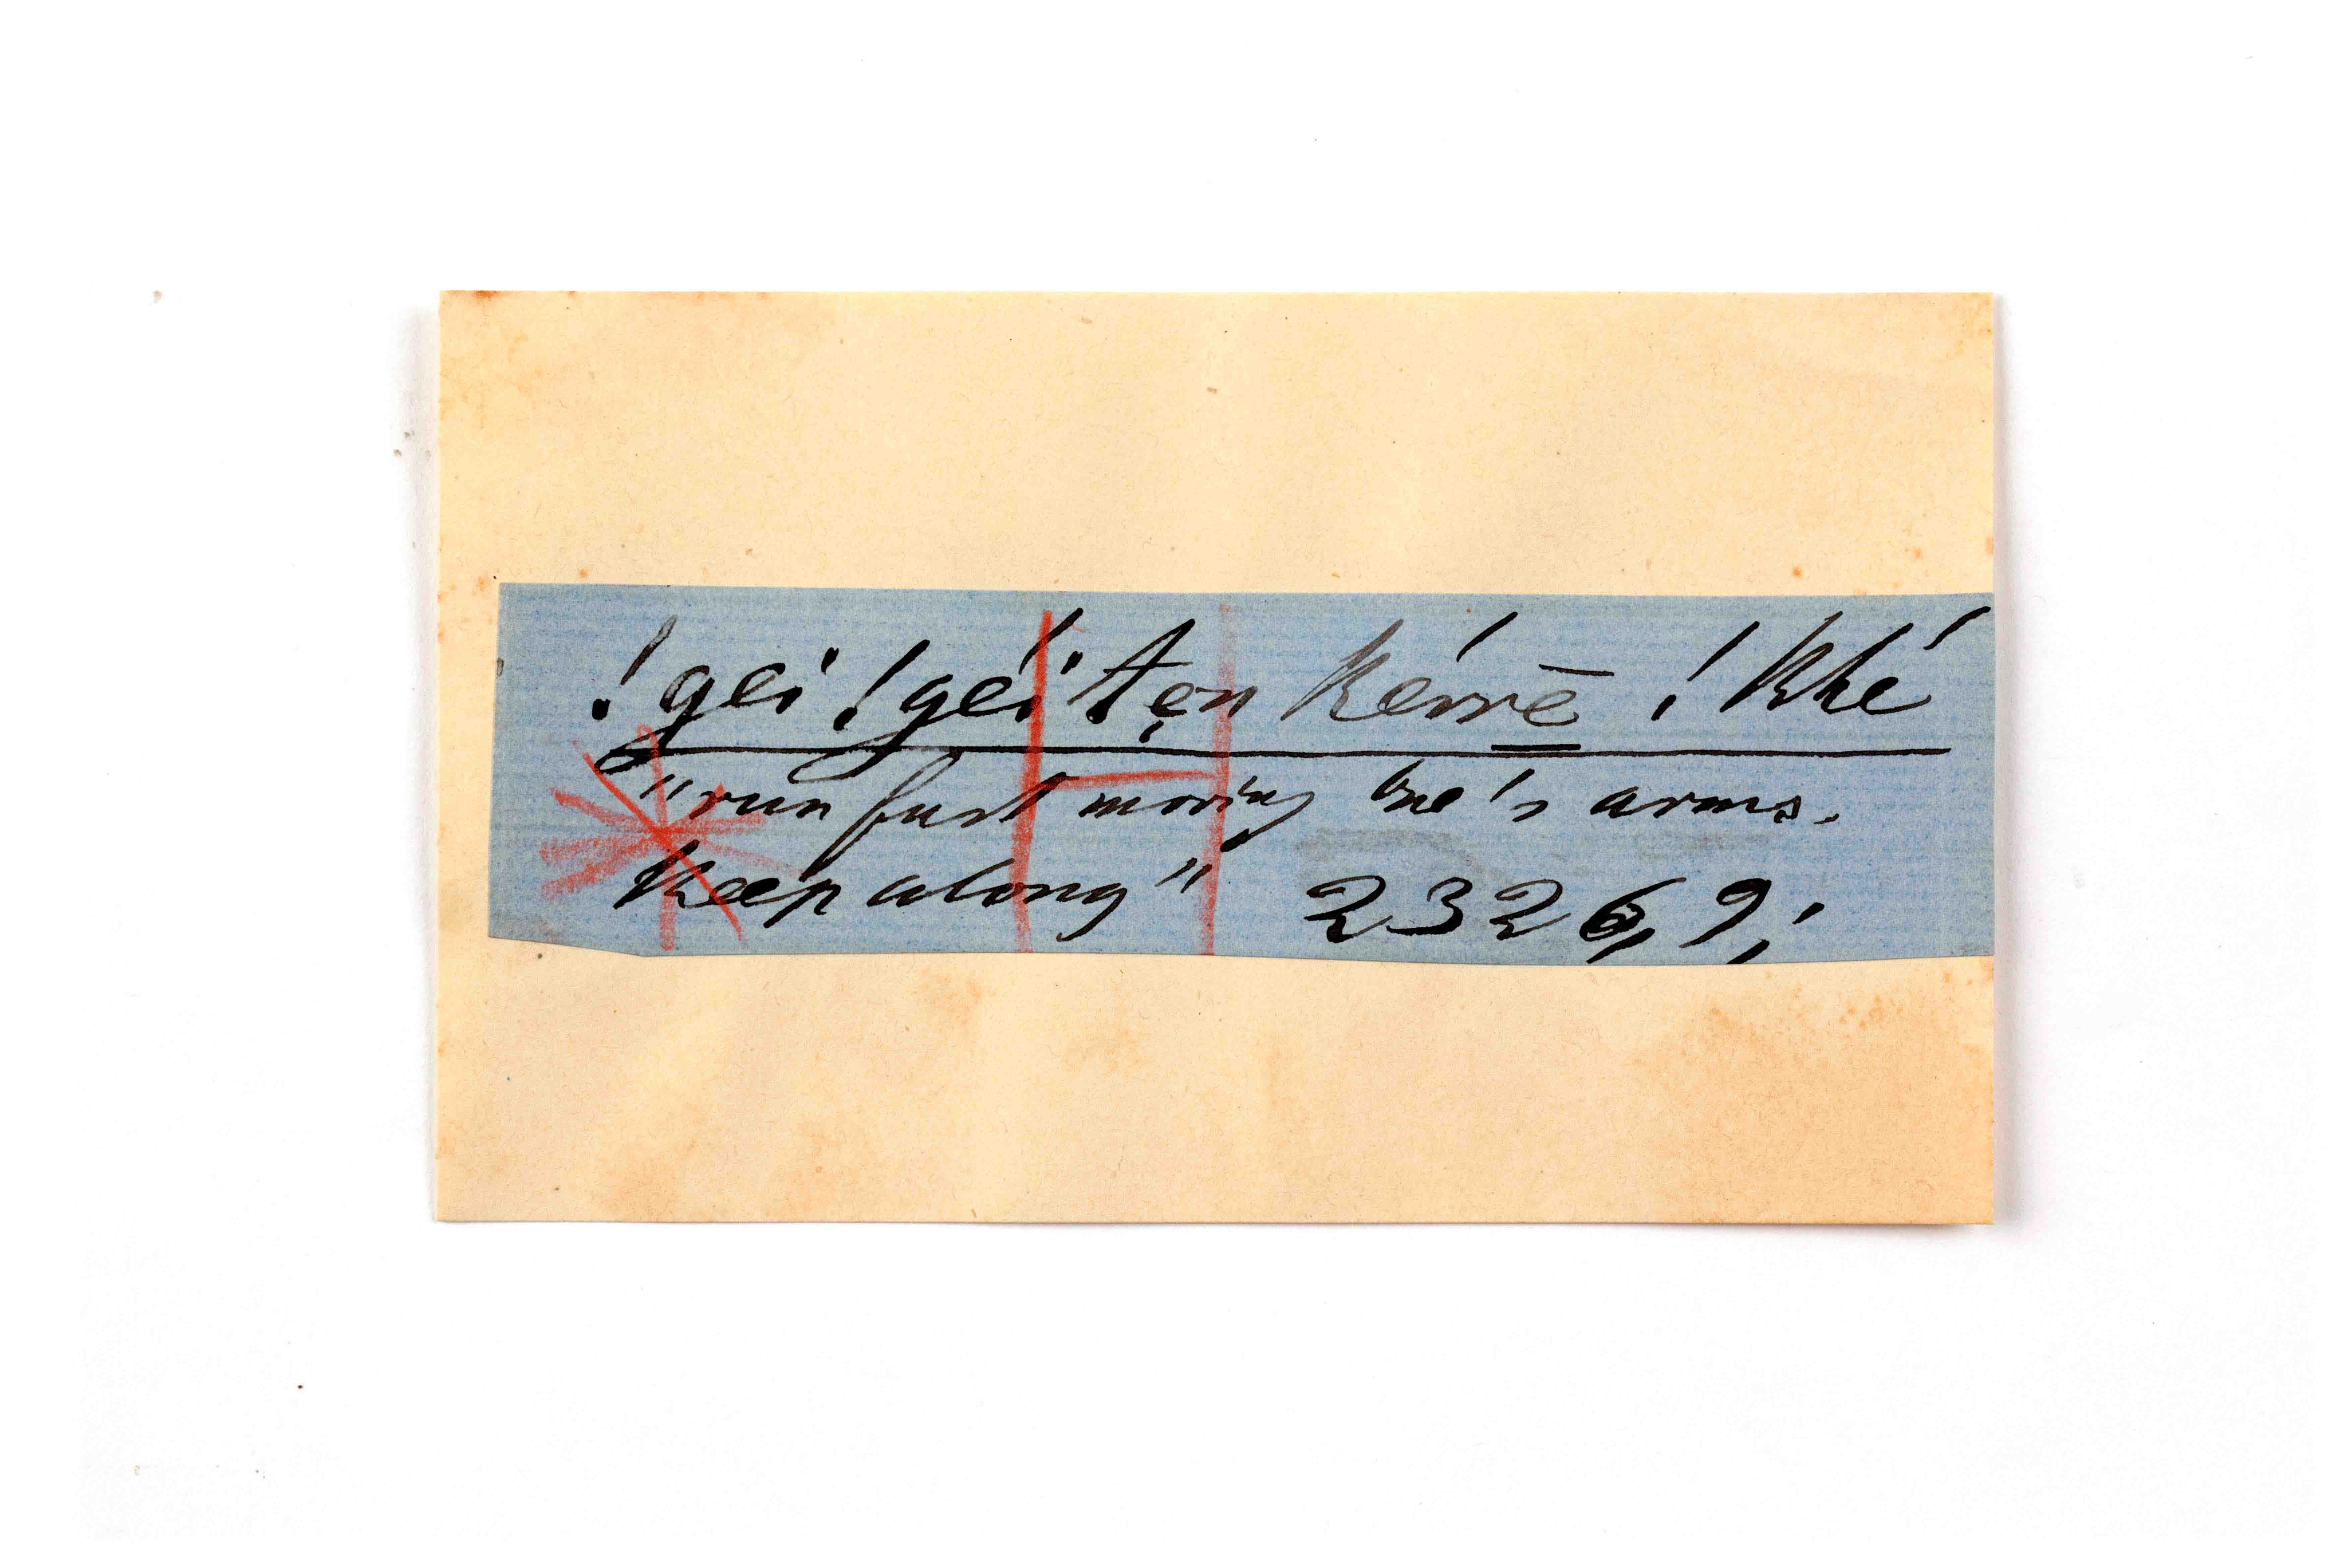 !gei !géi !tẹn kérrē ! khé
"run fast moving one's arms.
keep along" 2326,9;